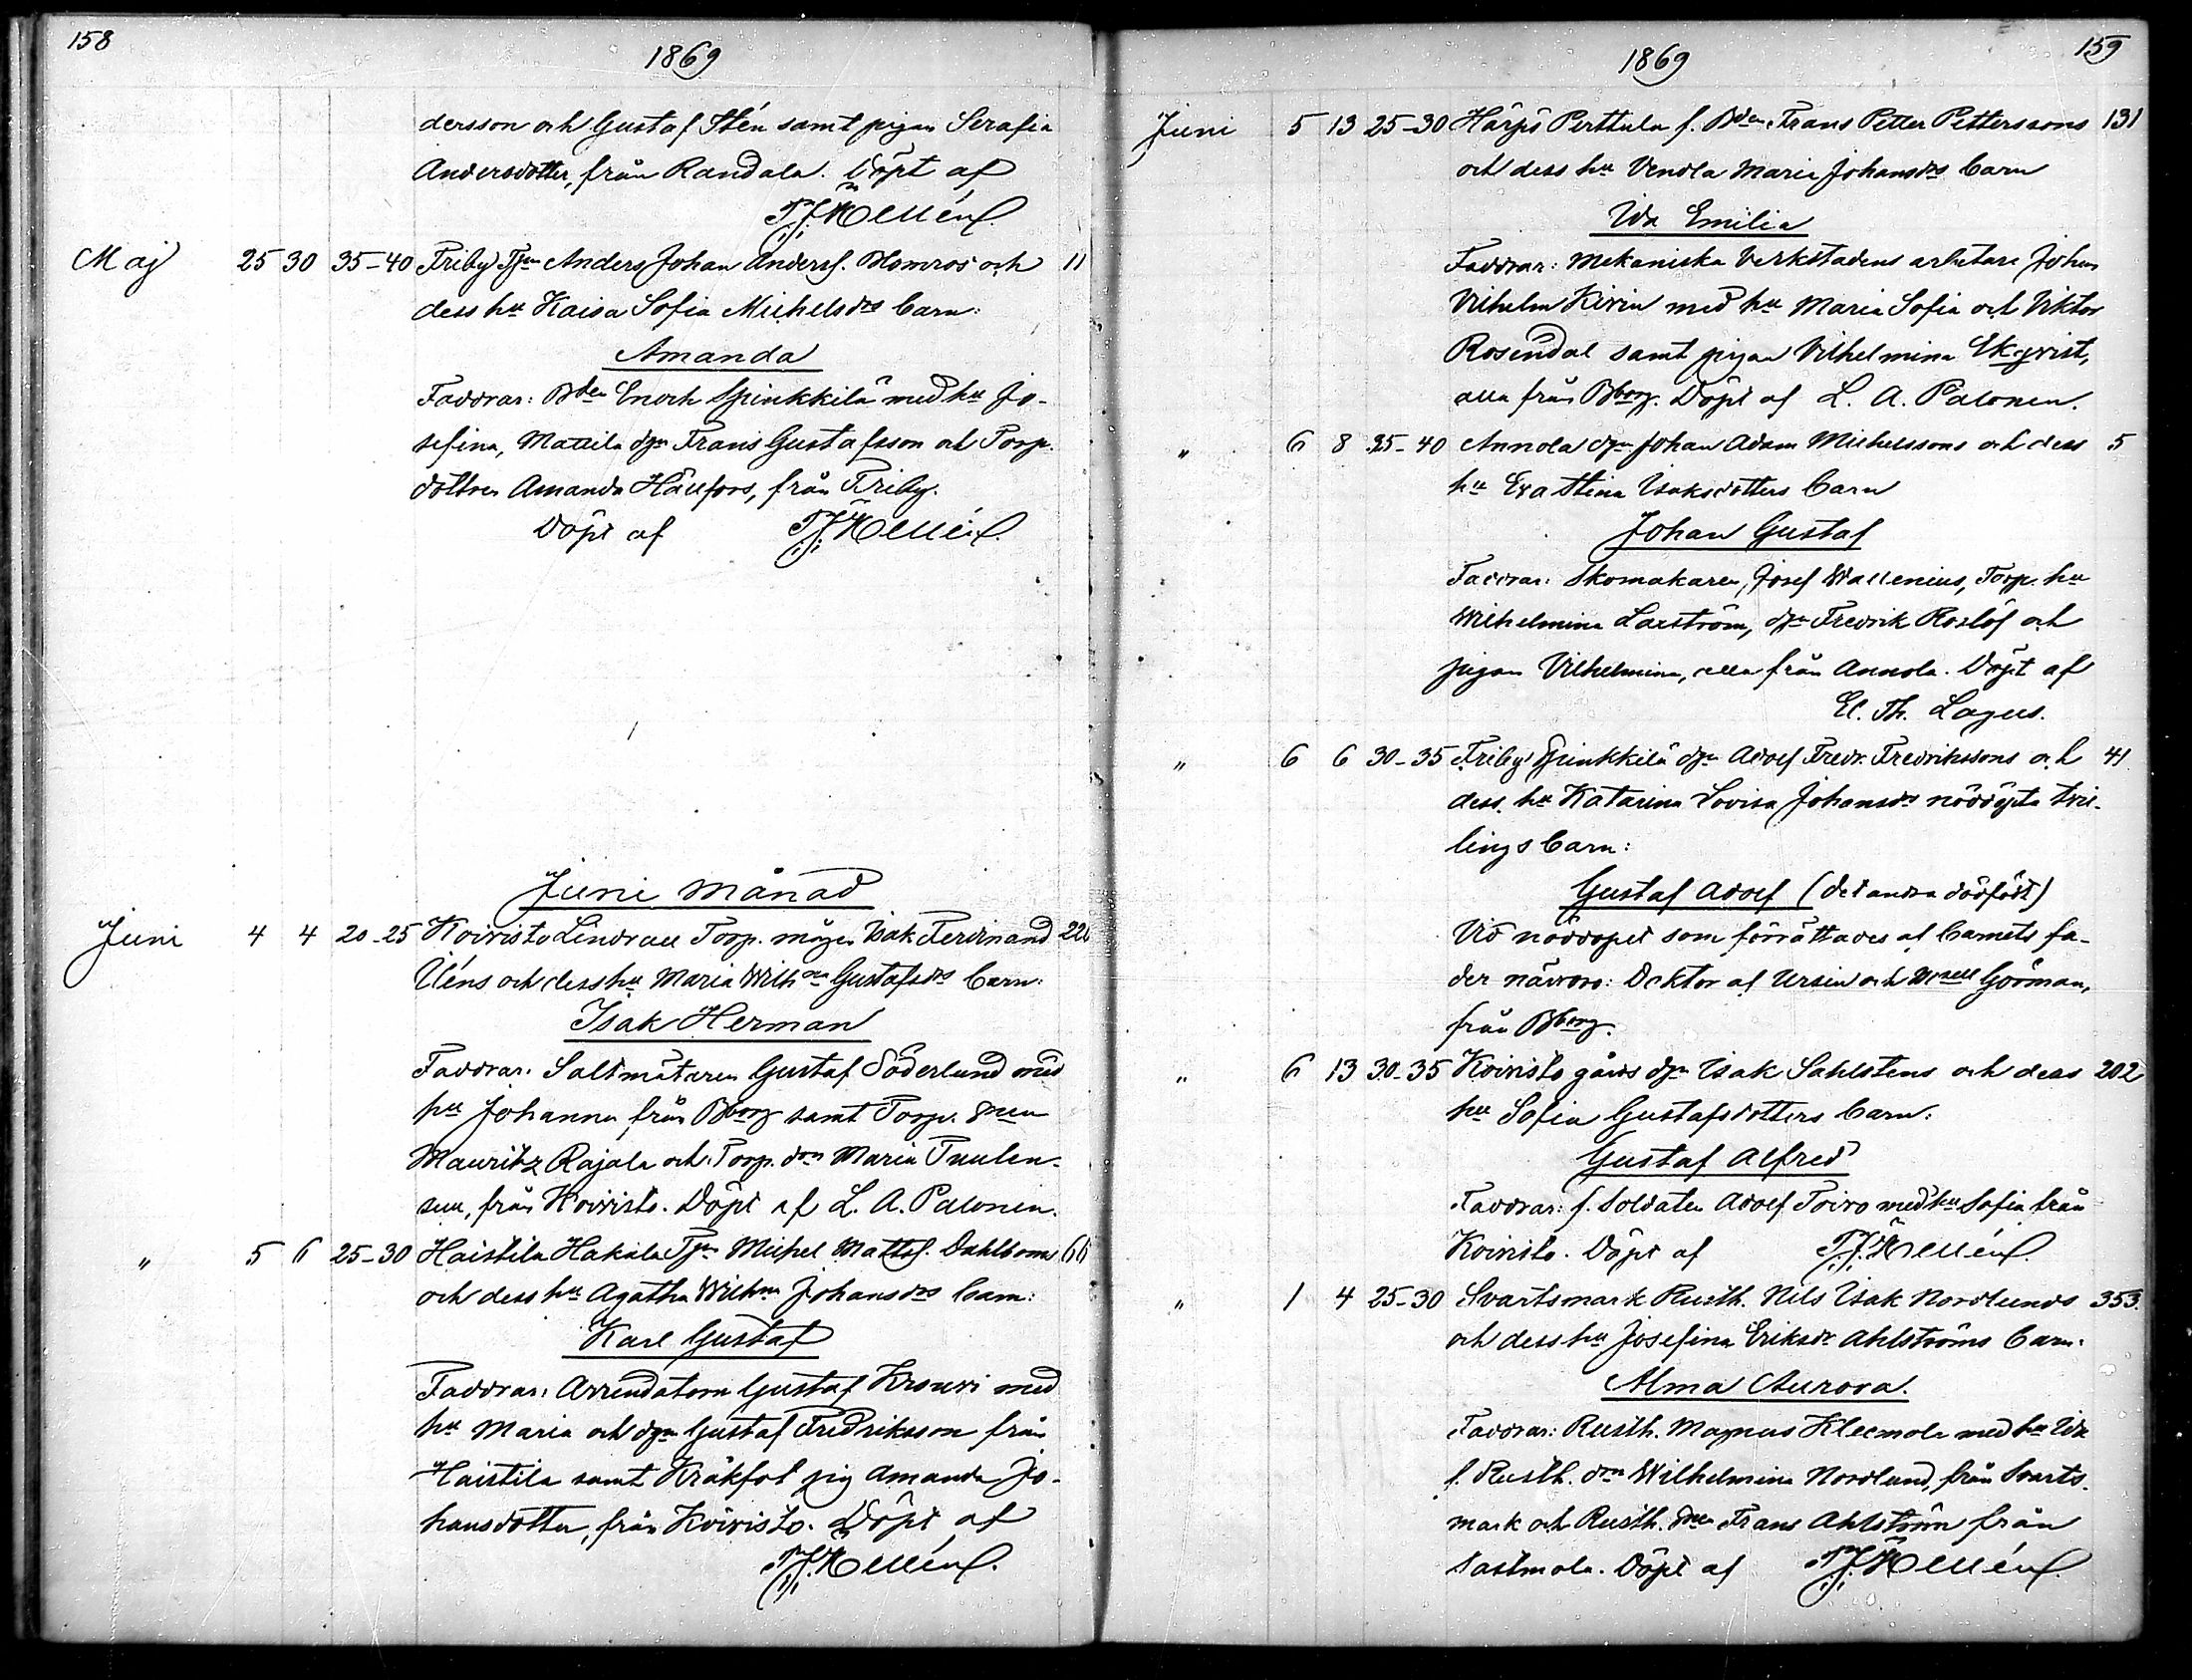 158
1869
dersson och Gustaf Stén samt pigan Serafia
Andersdotter, från Randala. Döpt af
Maj 25 30 35-40 Friby Tjn Anders Johan Andersf. Blomros och 11
dess hu Kaisa Sofia Michelsdrs barn:
Amanda
Faddrar: Bden Enoch Spinkkilä med hu Jo-
sefina, Mattila dgn Frans Gustafsson och Torp.
dottren Amanda Hällfors, från Friby.
Döpt af
Juni månad
Juni 4 4 20-25 Koivisto Lindvall Torp. mågen Isak Ferdinand 226
Uéns och dess hu Maria Wilhna Gustafsdrs barn:
Isak Herman
Faddrar: Saltmätaren Gustaf Söderlund med
hu Johanna från Bborg samt Torp. snen
Mauritz Rajala och Torp. drn Maria Tuulen-
suu, från Koivisto. Döpt af L. A. Palonen.
" 5 6 25-30 Haistila Hakala Tjn Michel Mattsf. Dahlboms 66
och dess hu Agatha Wilhna Johansdrs barn:
Karl Gustaf
Faddrar: Arrendatorn Gustaf Krouvi med
hu Maria och dgn Gustaf Fredriksson från
Haistila samt Kråkfot pig Amanda Jo-
hansdotter, från Koivisto. Döpt af
159
1869
Juni 5 13 25-30 Härpö Perttula f. Bden Frans Petter Petterssons 131
och dess hu Vendla Maria Johansdrs barn
Ida Emilia
Faddrar: Mekaniska Verkstadens arbetare Johan
Vilhelm Kivin med hu Maria Sofia och Viktor
Rosendal samt pigan Vilhelmina Ekqvist,
alla från Bborg. Döpt af L. A. Palonen.
" 6 8 35-40 Annola dgn Johan Adam Michelssons och dess 5
hu Eva Stina Isaksdotters barn
Johan Gustaf
Faddrar: Skomakaren, Josef Wallenius, Torp. hu
Wilhelmina Laxström, dgn Fredrik Roslöf och
pigan Vilhelmina, alla från Annola. Döpt af
El. Th. Lagus.
" 6 6 30-35 Friby Spinkkilä dgn Adolf Fredr. Fredrikssons och 41
dess hu Katarina Lovisa Johansdrs nöddöpta tvil-
lingsbarn:
Gustaf Adolf (det andra dödfödt)
Vid nöddopet som förrättades af barnets fa-
der närvoro: Doktor af Ursin och Msell Görman,
från Bborg.
" 6 13 30-35 Koivisto gårds dgn Isak Sahlstens och dess 202
hu Sofia Gustafsdotters barn:
Gustaf Alfred
Faddrar: f. Soldaten Adolf Toivo med hu Sofia från
Koivisto. Döpt af
" 1 4 25-30 Svartsmark Rusth. Nils Isak Nordlunds 353
och dess hu Josefina Eriksdr Ahlströms barn:
Alma Aurora.
Faddrar: Rusth. Magnus Kleemola med hu Ida
f. Rusth. drn Wilhelmina Nordlund, från Svarts-
mark och Rusth. snen Frans Ahlström från
Sastmola. Döpt af